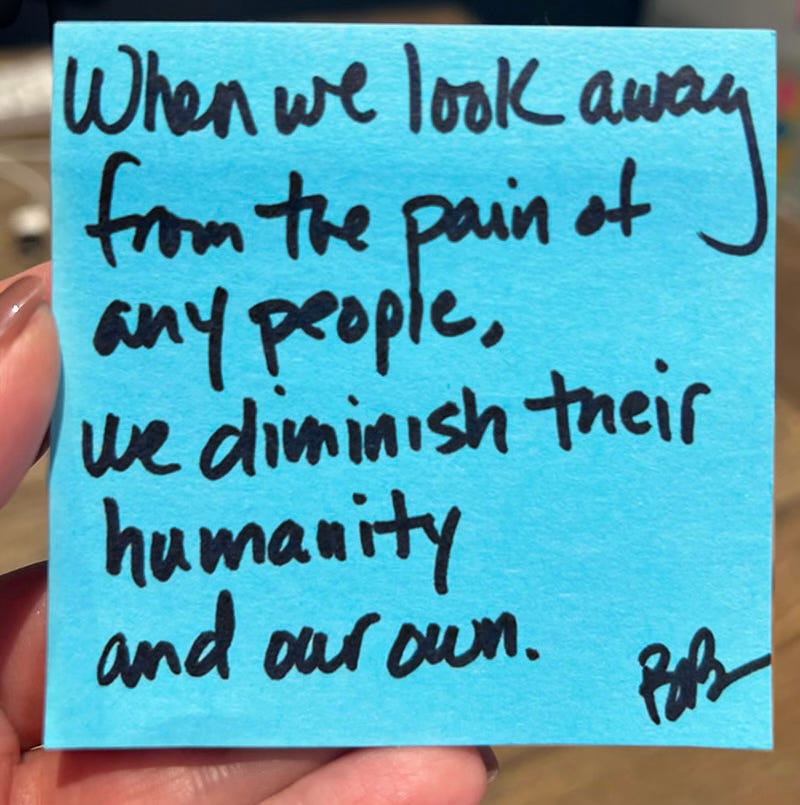 When we look away
from the pain of
any people,
we diminish their
humanity
and our own.
BrB